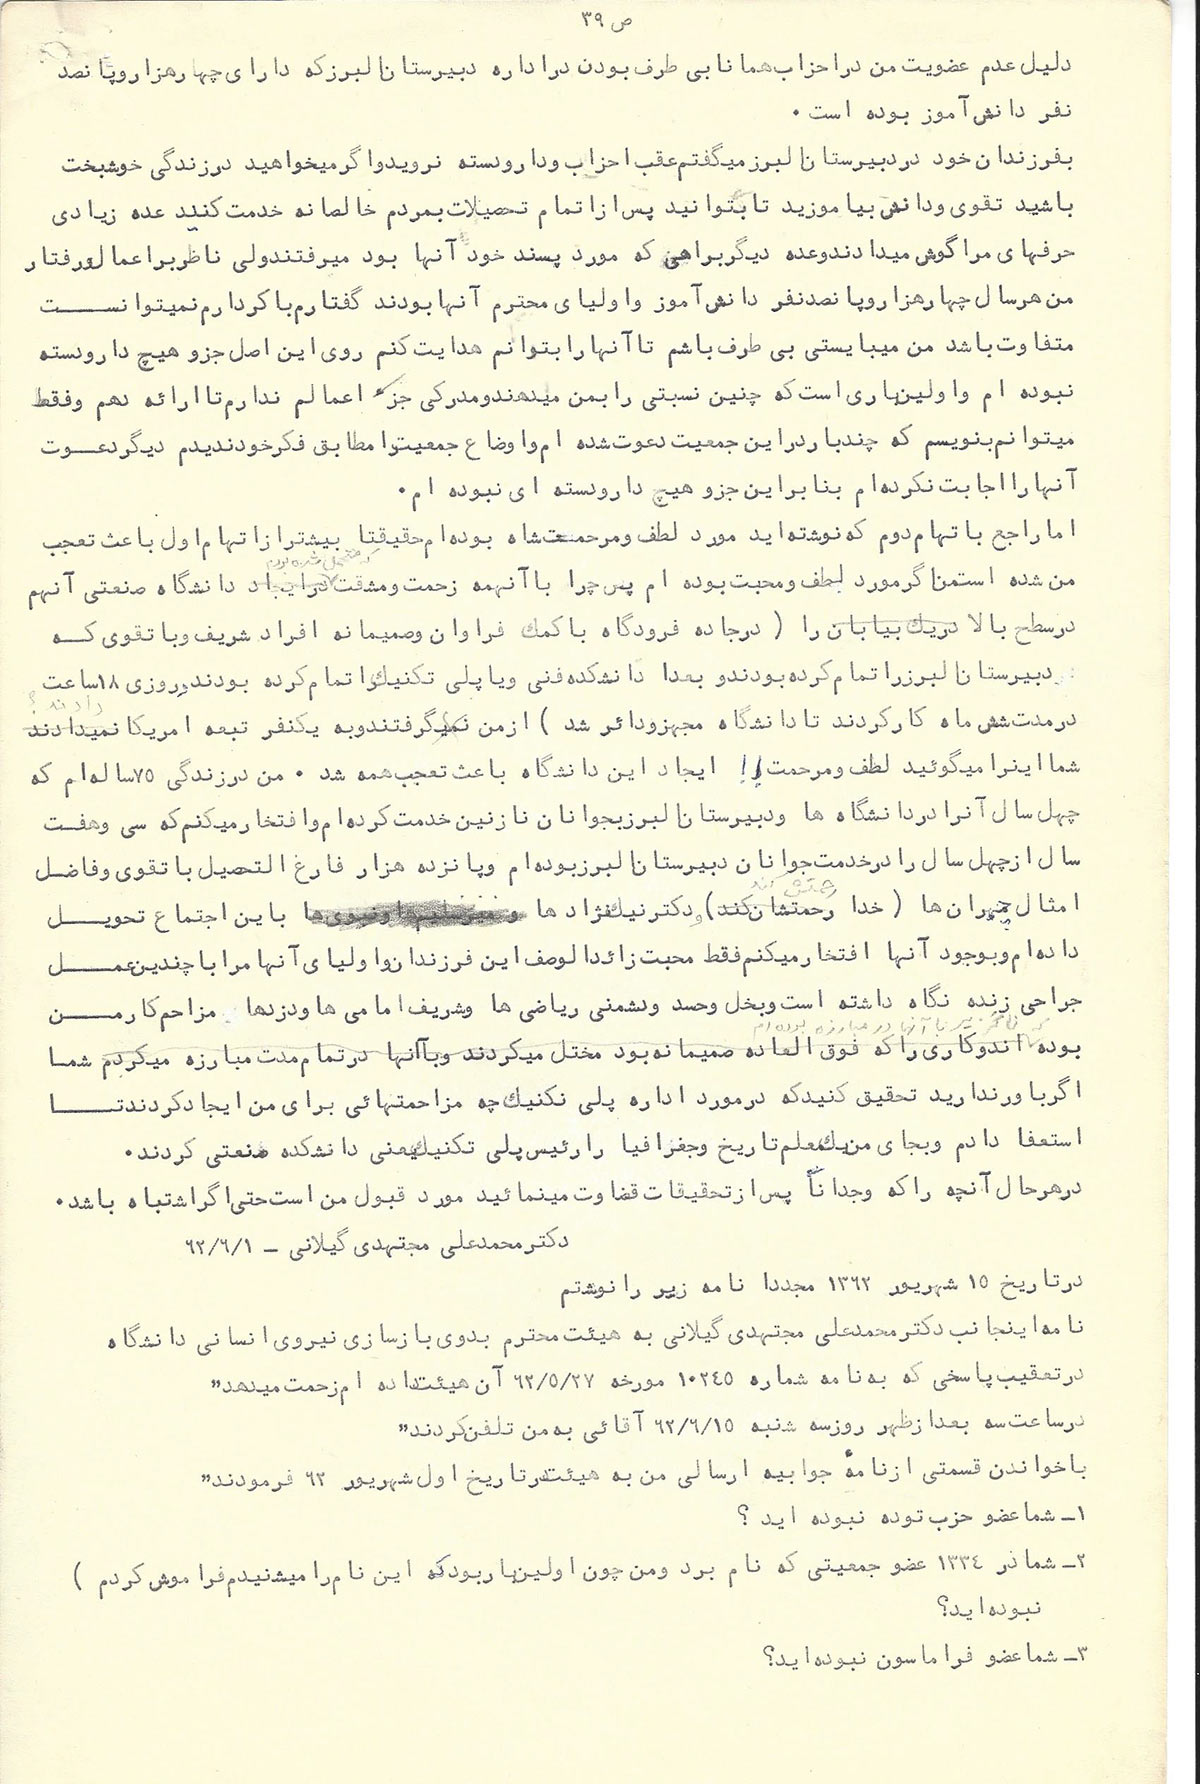 ص ۳۹
دلیل عدم عضویت من در احزاب همانا بی طرف بودن در اداره دبیرستان البرز که دارای چهار هزار و پانصد
نفر دانش آموز بوده است .
بفرزندان خود در دبیرستان البرز میگفتم عقب احزاب و دارودسته نروید و اگر میخواهید در زندگی خوشبخت
باشید تقوی و دانش بیاموزید تا بتوانید پس از اتمام تحصیلات بمردم خالصانه خدمت کنید عده زیادی
حرفهای مرا گوش میدادند و عده دیگر براهی که مورد پسند خود آنها بود میرفتند ولی ناظر بر اعمال و رفتار
من هر سال چهار هزار و پانصد نفر دانش آموز و اولیای محترم آنها بودند گفتارم با کردارم نمیتوانست
متفاوت باشد من میبایستی بی طرف باشم تا آنها را بتوانم هدایت کنم روی این اصل جزو هیچ دارودسته
نبوده ام و اولین باری است که چنین نسبتی را بمن میدهند و مدرکی جزء اعمالم ندارم تا ارائه دهم و فقط
میتوانم بنویسم که چند بار در این جمعیت دعوت شده ام و اوضاع جمعیت را مطابق فکر خود ندیدم دیگر دعوت
آنها را اجابت نکرده ام بنابراین جزو هیچ دارودسته ای نبوده ام .
اما راجع باتهام دوم که نوشته اید مورد لطف و مرحمت شاه بوده ام حقیقتا بیشتر از اتهام اول باعث تعجب
که متحمل شده بودم
من شده است من اگر مورد لطف و محبت بوده ام پس چرا با آنهمه زحمت و مشقت در ایجاد دانشگاه صنعتی آنهم
در سطح بالا در یك بیابان را ( در جاده فرودگاه با کمك فراوان و صمیمانه افراد شریف و با تقوی که
دبیرستان البرز را تمام کرده بودند و بعدا دانشکده فنی و یا پلی تکنیك را تمام کرده بودند و روزی ۱۸ ساعت
دادند ؟
در مدت شش ماه کار کردند تا دانشگاه مجهز و دائر شد ) از من نمیگرفتند و به یکنفر تبعه امریکا نمیدادند
شما اینرا میگوئید لطف و مرحمت !! ایجاد این دانشگاه باعث تعجب همه شد . من در زندگی ۷۵ ساله ام که
چهل سال آنرا در دانشگاه ها و دبیرستان البرز بجوانان نازنین خدمت کرده ام و افتخار میکنم که سی و هفت
سال از چهل سال را در خدمت جوانان دبیرستان البرز بوده ام و پانزده هزار فارغ التحصیل با تقوی و فاضل
رحمتش کند
امثال چمران ها ( خدا رحمتشان کند ) و دکتر نیك نژاد ها و باین اجتماع تحویل
داده ام و بوجود آنها افتخار میکنم فقط محبت زائدالوصف این فرزندان و اولیای آنها مرا با چندین عمل
جراحی زنده نگاه داشته است و بخل و حسد و دشمنی ریاضی ها و شریف امامی ها و دزدها مزاحم کار من
که ناگزیر با آنها در مبارزه بوده ام
بوده اند و کاری را که فوق العاده صمیمانه بود مختل میکردند و با آنها در تمام مدت مبارزه میکردم شما
اگر باور ندارید تحقیق کنید که در مورد اداره پلی تکنیك چه مزاحمتهائی برای من ایجاد کردند تا
استعفا دادم و بجای من یك معلم تاریخ و جغرافیا را رئیس پلی تکنیك یعنی دانشکده صنعتی کردند .
در هر حال آنچه را که وجداناً پس از تحقیقات قضاوت مینمائید مورد قبول من است حتی اگر اشتباه باشد .
دکتر محمد علی مجتهدی گیلانی ــ ۶۲/۶/۱
در تاریخ ۱۵ شهریور ۱۳۶۲ مجددا نامه زیر را نوشتم
نامه اینجانب دکتر محمد علی مجتهدی گیلانی به هیئت محترم بدوی بازسازی نیروی انسانی دانشگاه
در تعقیب پاسخی که به نامه شماره ۱۰۲۴۵ مورخه ۶۲/۵/۲۷ آن هیئت داده ام زحمت میدهد"
در ساعت سه بعد از ظهر روز سه شنبه ۶۲/۶/۱۵ آقائی به من تلفن کردند"
با خواندن قسمتی از نامهٔ جوابیه ارسالی من به هیئت در تاریخ اول شهریور ۶۲ فرمودند"
۱ــ شما عضو حزب توده نبوده اید ؟
۲ــ شما در ۱۳۳۴ عضو جمعیتی که نام برد و من چون اولین بار بود که این نام را میشنیدم فراموش کردم )
نبوده اید؟
۳ــ شما عضو فراماسون نبوده اید؟